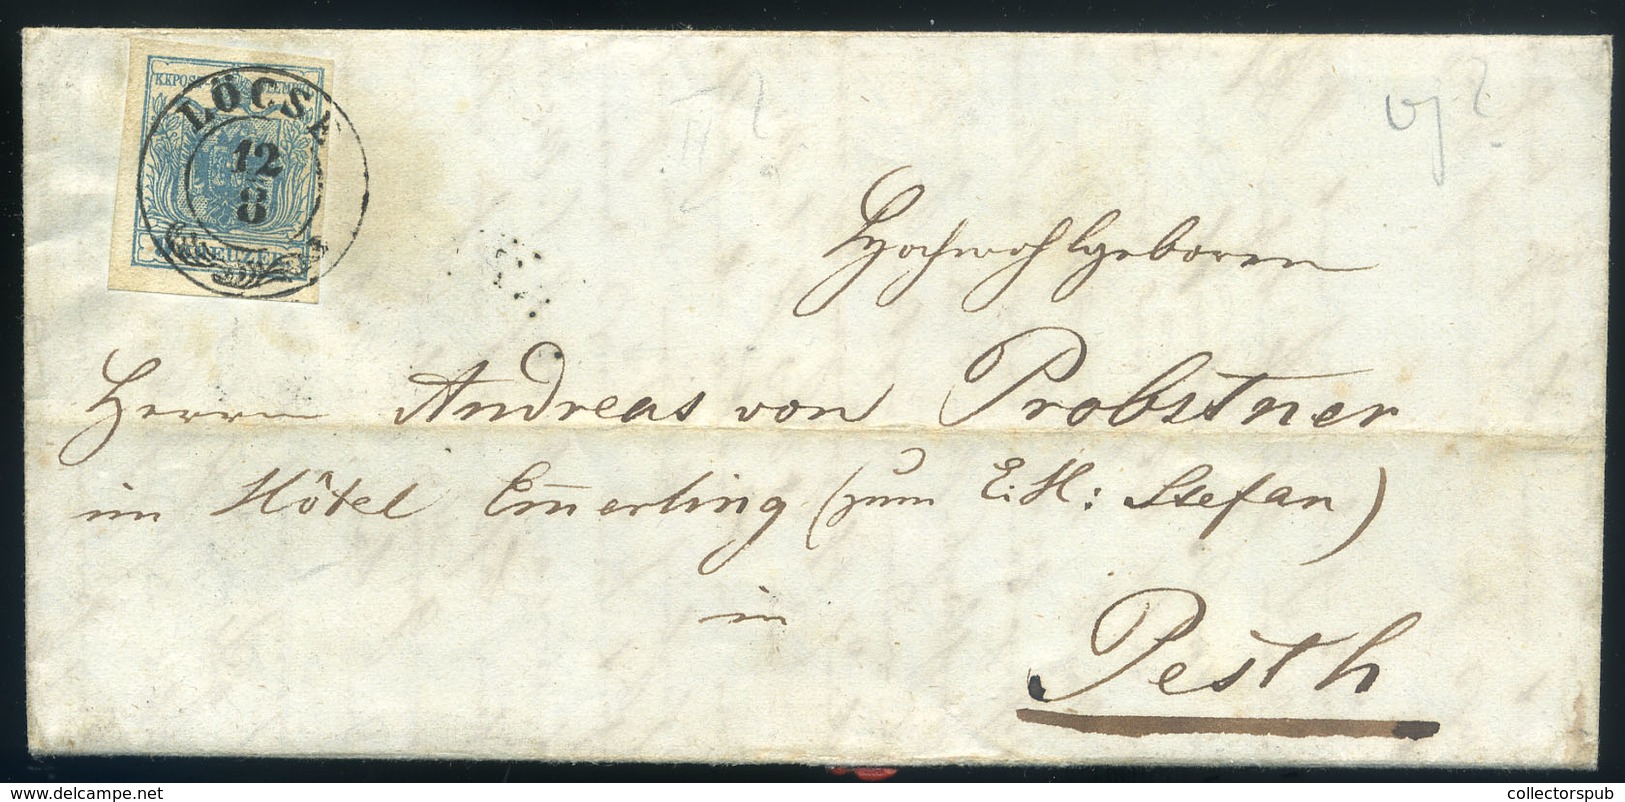 KKPOST STEMPEL
LÖCSE
12
8
KREUZER
Hochwohlgeboren
Herrn Andreas von Probstner
im Hôtel Em̅erling (zum E: H: Stefan)
in
Pesth
delcampe.net
collectorspub